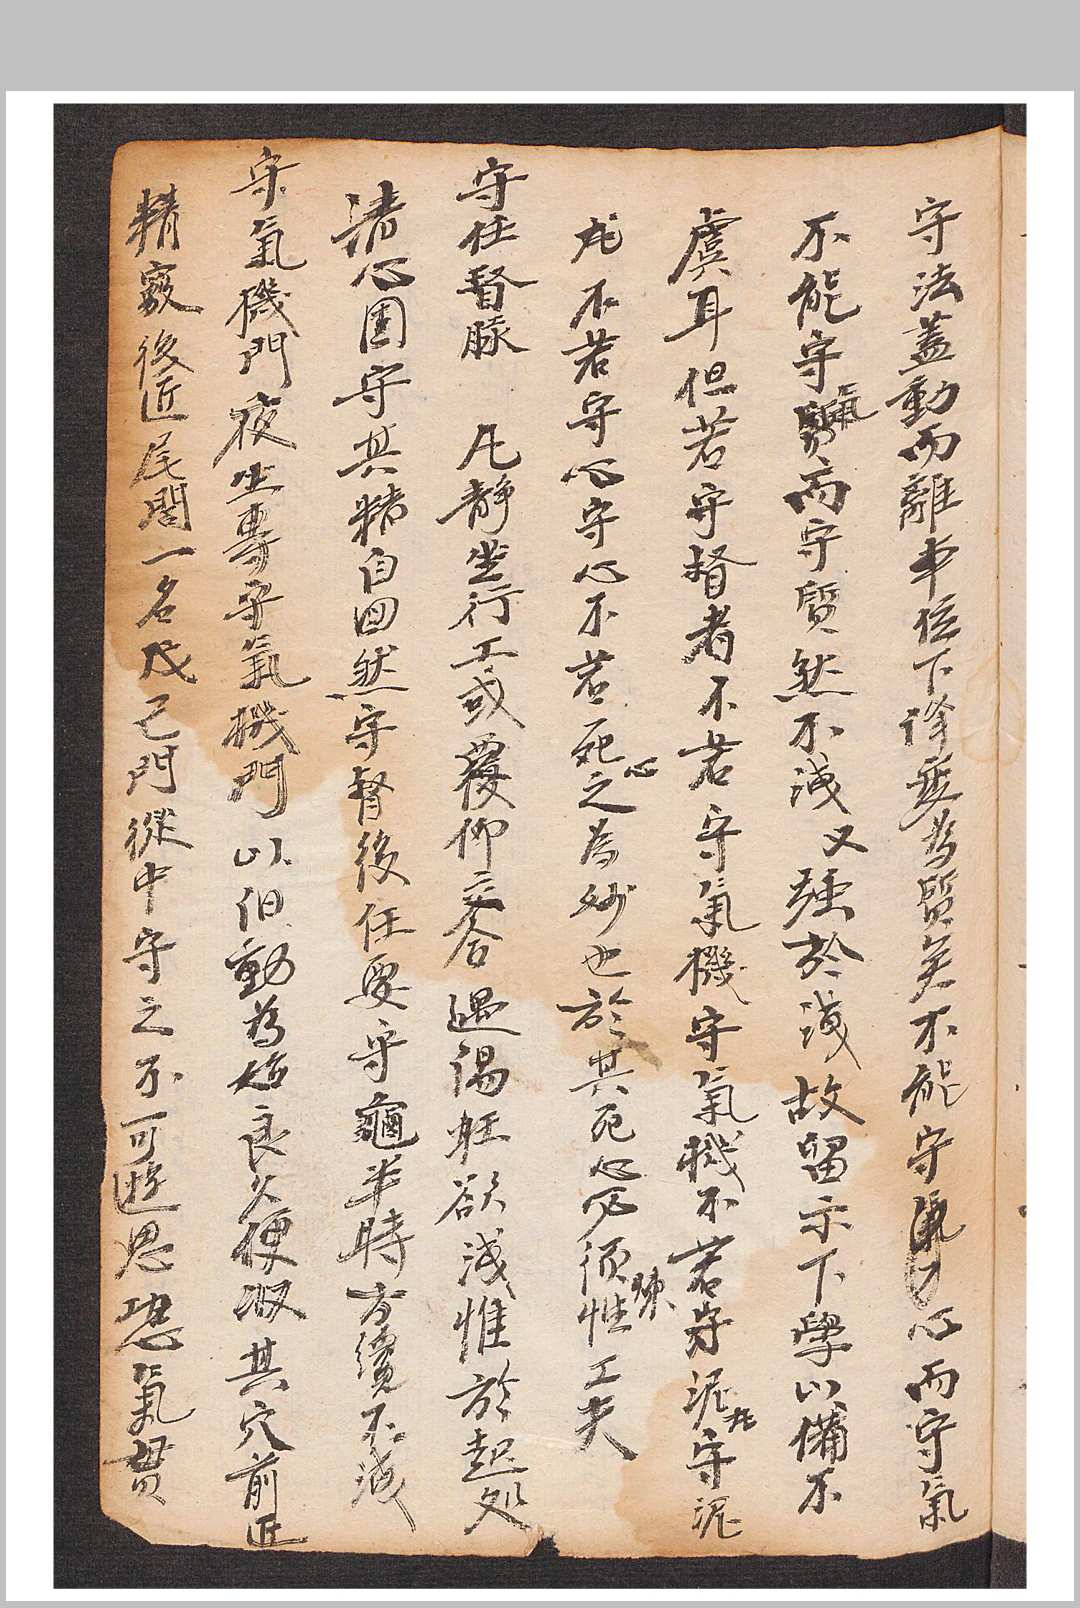 守法蓋動而離本位下降變為質矣不能守心而守氣
不能守氣而守質然不洩又強於洩故留示下學以備不
虞耳但若守督者不若守氣機守氣機不若守泥丸守泥
丸不若守心守心不若死心之為妙也於其死心必須煉性工夫
守任督脉　凡靜坐行工或覆仰交合遇陽旺欲洩惟於起处
清心固守其精自回然守督後任要守龜半時方纔不洩
守氣機門夜坐專守氣機門以伹動為始良久便収其穴前近
精竅後近尾閭一名戊己門從中守之不可遊思恐氣貫